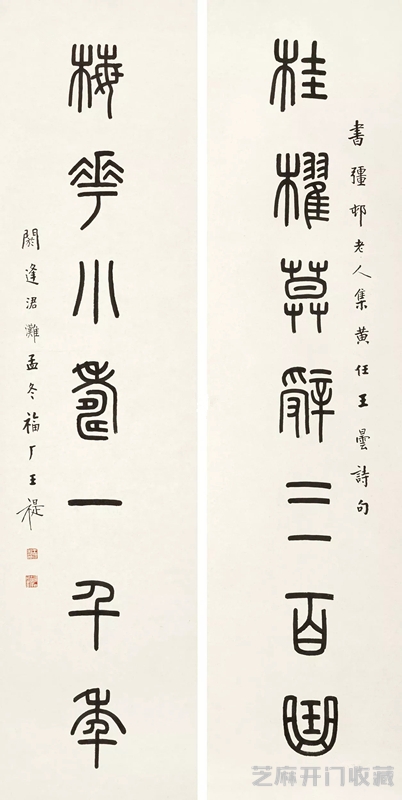 書彊邨老人集黄任王曇詩句
桂櫂莫辭三百
梅花小壽一千年
閼逢涒灘孟冬福厂王禔
芝麻开门收藏